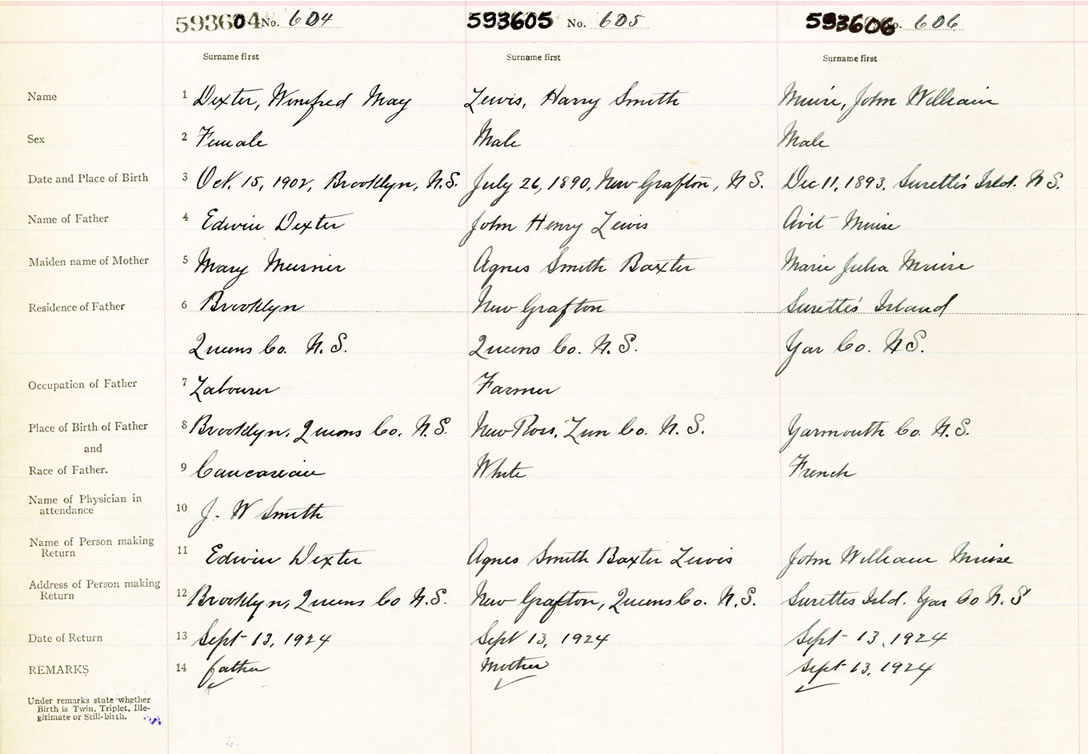 593604 No. 604 593605 No. 605 593606 No. 606
Surname first Surname first Surname first
Name 1 Dexter, Winifred May Lewis, Harry Smith Muise, John William
Sex 2 Female Male Male
Date and Place of Birth 3 Oct. 15, 1902, Brooklyn, N.S. July 26, 1890, New Grafton, N.S. Dec 11, 1893, Surette's Isld. N.S.
Name of Father 4 Edwin Dexter John Henry Lewis Avit Muise
Maiden name of Mother 5 Mary Agnes Smith Baxter Marie Julia Muise
Residence of Father 6 Brooklyn New Grafton Surette's Island
Queens Co. N.S. Queens Co. N.S. Yar Co. N.S.
Occupation of Father 7 Labourer Farmer
Place of Birth of Father 8 Brooklyn, Queens Co. N.S. New Ross, Lun Co. N.S. Yarmouth Co. N.S.
and
Race of Father. 9 Caucasian White French
Name of Physician in
attendance 10 J. W Smith
Name of Person making
Return 11 Edwin Dexter Agnes Smith Baxter Lewis John William Muise
Address of Person making
Return 12 Brooklyn, Queens Co N.S. New Grafton, Queens Co. N.S. Surettes Isld. Yar Co N.S
Date of Return 13 Sept 13, 1924 Sept 13, 1924 Sept 13, 1924
REMARKS 14 father mother Sept 13, 1924
Under remarks state whether
Birth is Twin, Triplet, Ille-
gitimate or Still-birth.